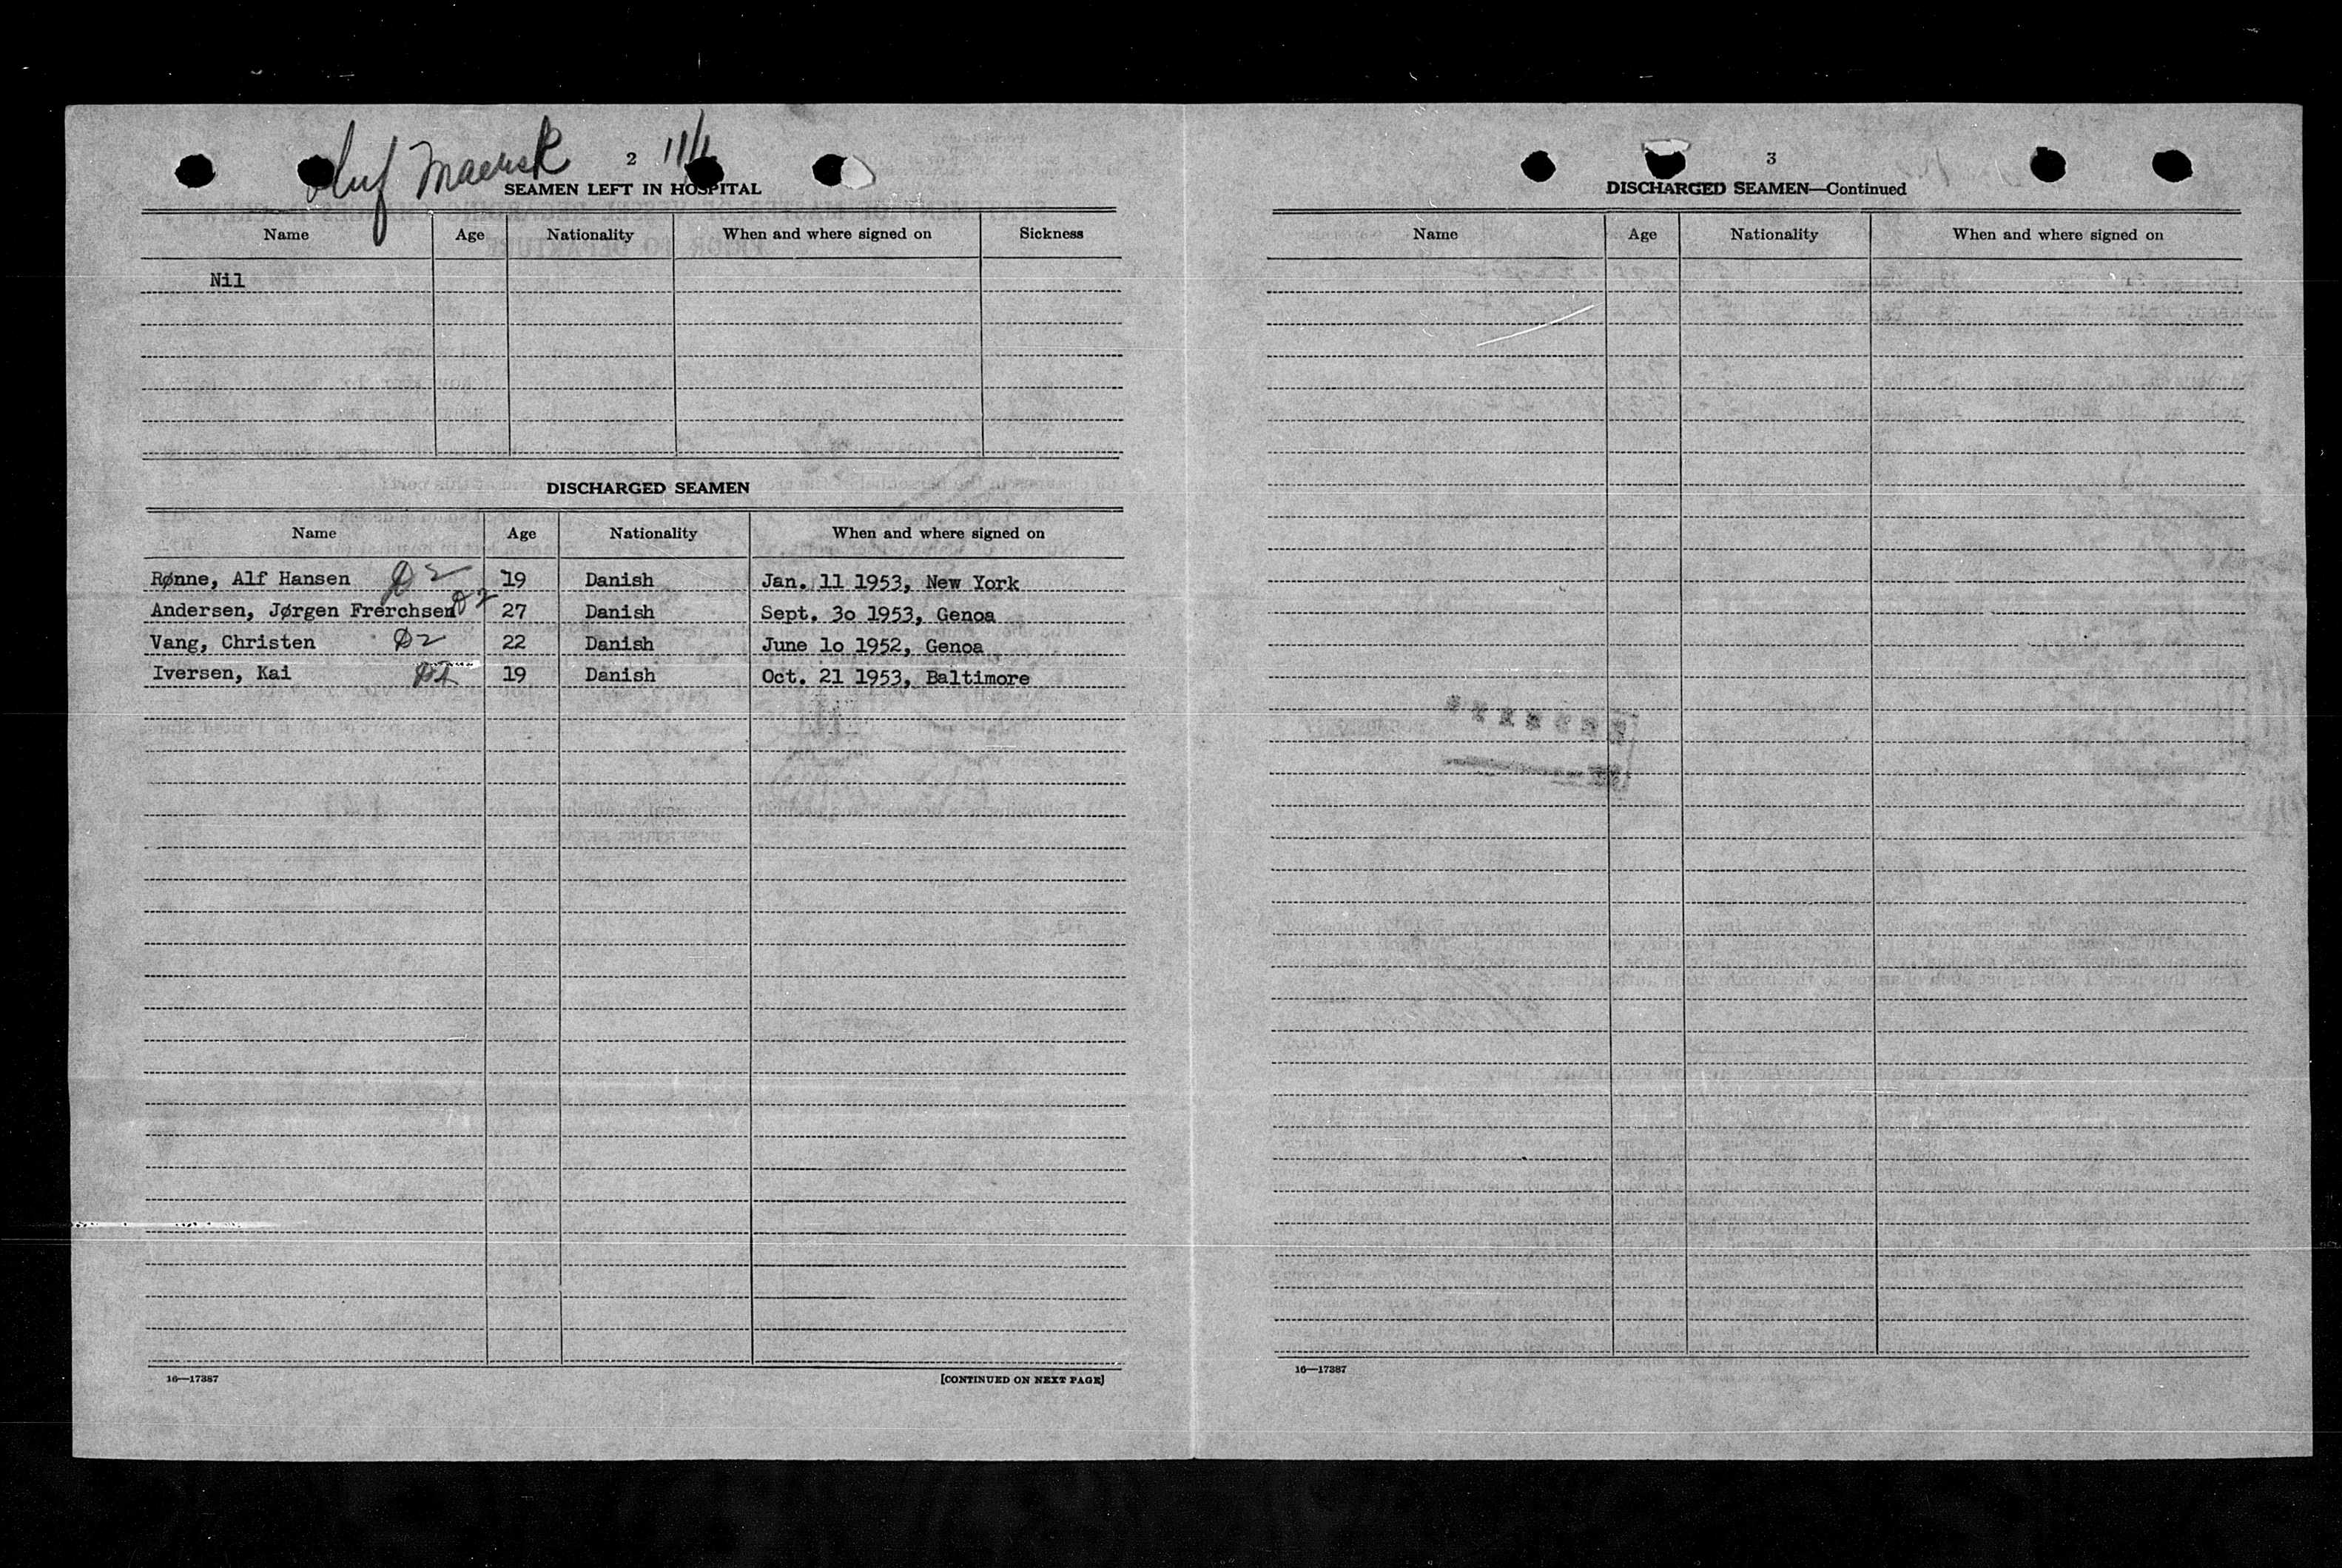 Oluf Maersk 2 11/1
SEAMEN LEFT IN HOSPITAL
Name Age Nationality When and where signed on Sickness
Nil
DISCHARGED SEAMEN
Name Age Nationality When and where signed on
Rønne, Alf Hansen D2 19 Danish Jan. 11 1953, New York
Andersen, Jørgen Frerchsen D2 27 Danish Sept. 3o 1953, Genoa
Vang, Christen D2 22 Danish June 1o 1952, Genoa
Iversen, Kai D1 19 Danish Oct. 21 1953, Baltimore
16—17387 [CONTINUED ON NEXT PAGE]
3
DISCHARGED SEAMEN—Continued
Name Age Nationality When and where signed on
16—17387